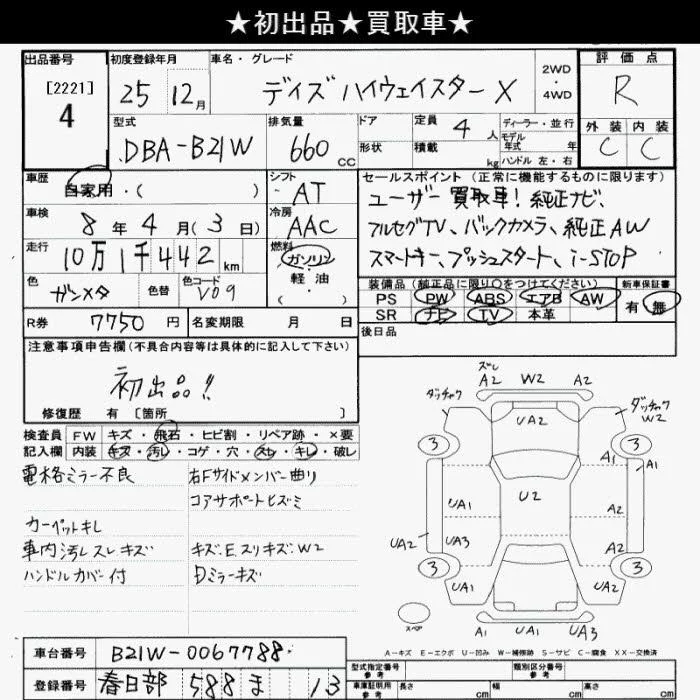 ★初出品★買取車★
出品番号
[2221]
4
初度登録年月
25 12月
車名・グレード
デイズ ハイウェイスター X
2WD
・
4WD
評価点
R
外装 内装
C C
型式
DBA-B21W
排気量
660 CC
ドア
形状
定員 4 人
積載 kg
ディーラー・並行
モデル
年式 年
ハンドル 左・右
車歴
自家用・( )
シフト
AT
車検
8年 4月 (3日)
冷房
AAC
走行
10万1千442 km
燃料
ガソリン
軽・油
( )
色
ガンメタ
色替
色コード
V09
セールスポイント (正常に機能するものに限ります)
ユーザー買取車! 純正ナビ、
フルセグTV、バックカメラ、純正AW
スマートキー、プッシュスタート、i-STOP
装備品 (純正品に限り○をつけてください)
PS PW ABS エアB AW
SR ナビ TV 本革
新車保証書
有・無
R券 7750 円
名変期限 月 日
後日品
注意事項申告欄 (不具合内容等は具体的に記入して下さい)
初出品!!
修復歴 有 [箇所 ]
検査員 FW キズ・飛石・ヒビ割・リペア跡・×要
記入欄 内装 キズ・汚し・コゲ・穴・スレ・キレ・破し
電格ミラー不良
カーペットキレ
車内汚レスレキズ
ハンドルカバー付
右Fサイドメンバー曲り
コアサポートヒズミ
キズ.E.スリキズ.W2
Dミラーキズ
ズレ
A2 W2 A2
ダッチャク
ダッチャク
W2
UA2
3 3
A1 A1
U2
UA1 A2
UA2 UA3 A2
3 3
UA2 UA2
スペア
A1 UA1 UA3
A-キズ E-エクボ U-凹み W-補修跡 S-サビ C-腐食 XX-交換済
車台番号 B21W-0067788
登録番号 春日部 588 ま 13
型式指定番号
参考
類別区分番号
参考
車庫証明用
参考
長さ cm 幅 cm 高さ cm